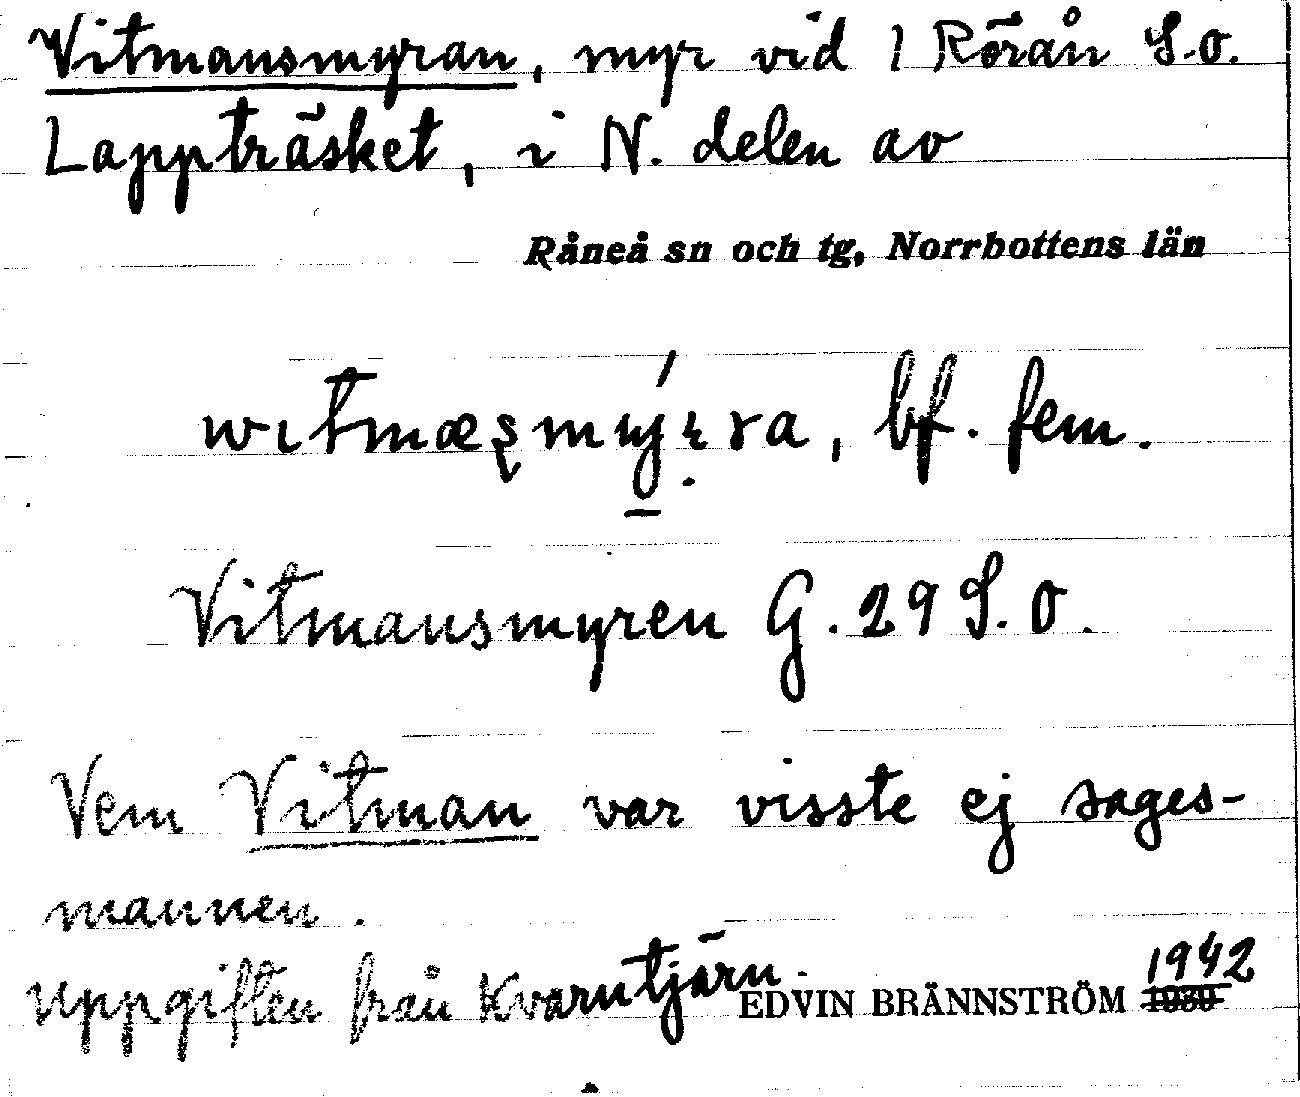 Vitmansmyran, myr vid l Rörån S.O.
Lappträsket, i N. delen av
Råneå sn och tg, Norrbottens län
bf. fem.
Vitmansmyren G. 29 S.O.
Vem Vitman var visste ej sages-
mannen.
Uppgiften från Kvarntjärn.
EDVIN BRÄNNSTRÖM 1942